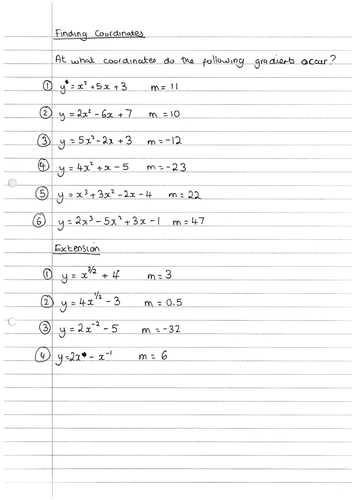 Finding Coordinates
At what coordinates do the following gradients occur?
① y = x² + 5x + 3 m = 11
② y = 2x² - 6x + 7 m = 10
③ y = 5x² - 2x + 3 m = -12
④ y = 4x² + x - 5 m = -23
⑤ y = x³ + 3x² - 2x - 4 m = 22
⑥ y = 2x³ - 5x² + 3x - 1 m = 47
Extension
① y = x^(3/2) + 4 m = 3
② y = 4x^(1/2) - 3 m = 0.5
③ y = 2x⁻² - 5 m = -32
④ y = 2x - x⁻¹ m = 6